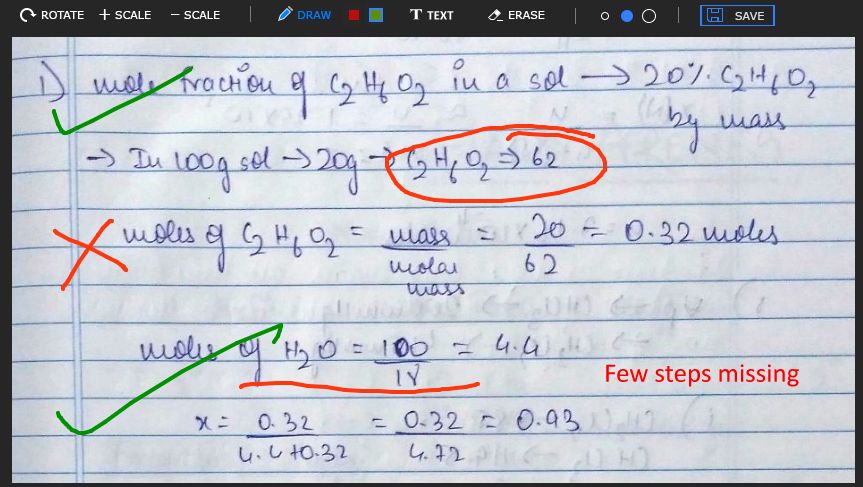 ROTATE + SCALE − SCALE DRAW T TEXT ERASE SAVE
1) mole fraction of C2H6O2 in a sol → 20% C2H6O2
by mass
→ In 100g sol → 20g → C2H6O2 ⇒ 62
moles of C2H6O2 = mass / molar mass = 20 / 62 = 0.32 moles
moles of H2O = 100 / 18 = 4.4
Few steps missing
x = 0.32 / 4.4+0.32 = 0.32 / 4.72 = 0.93